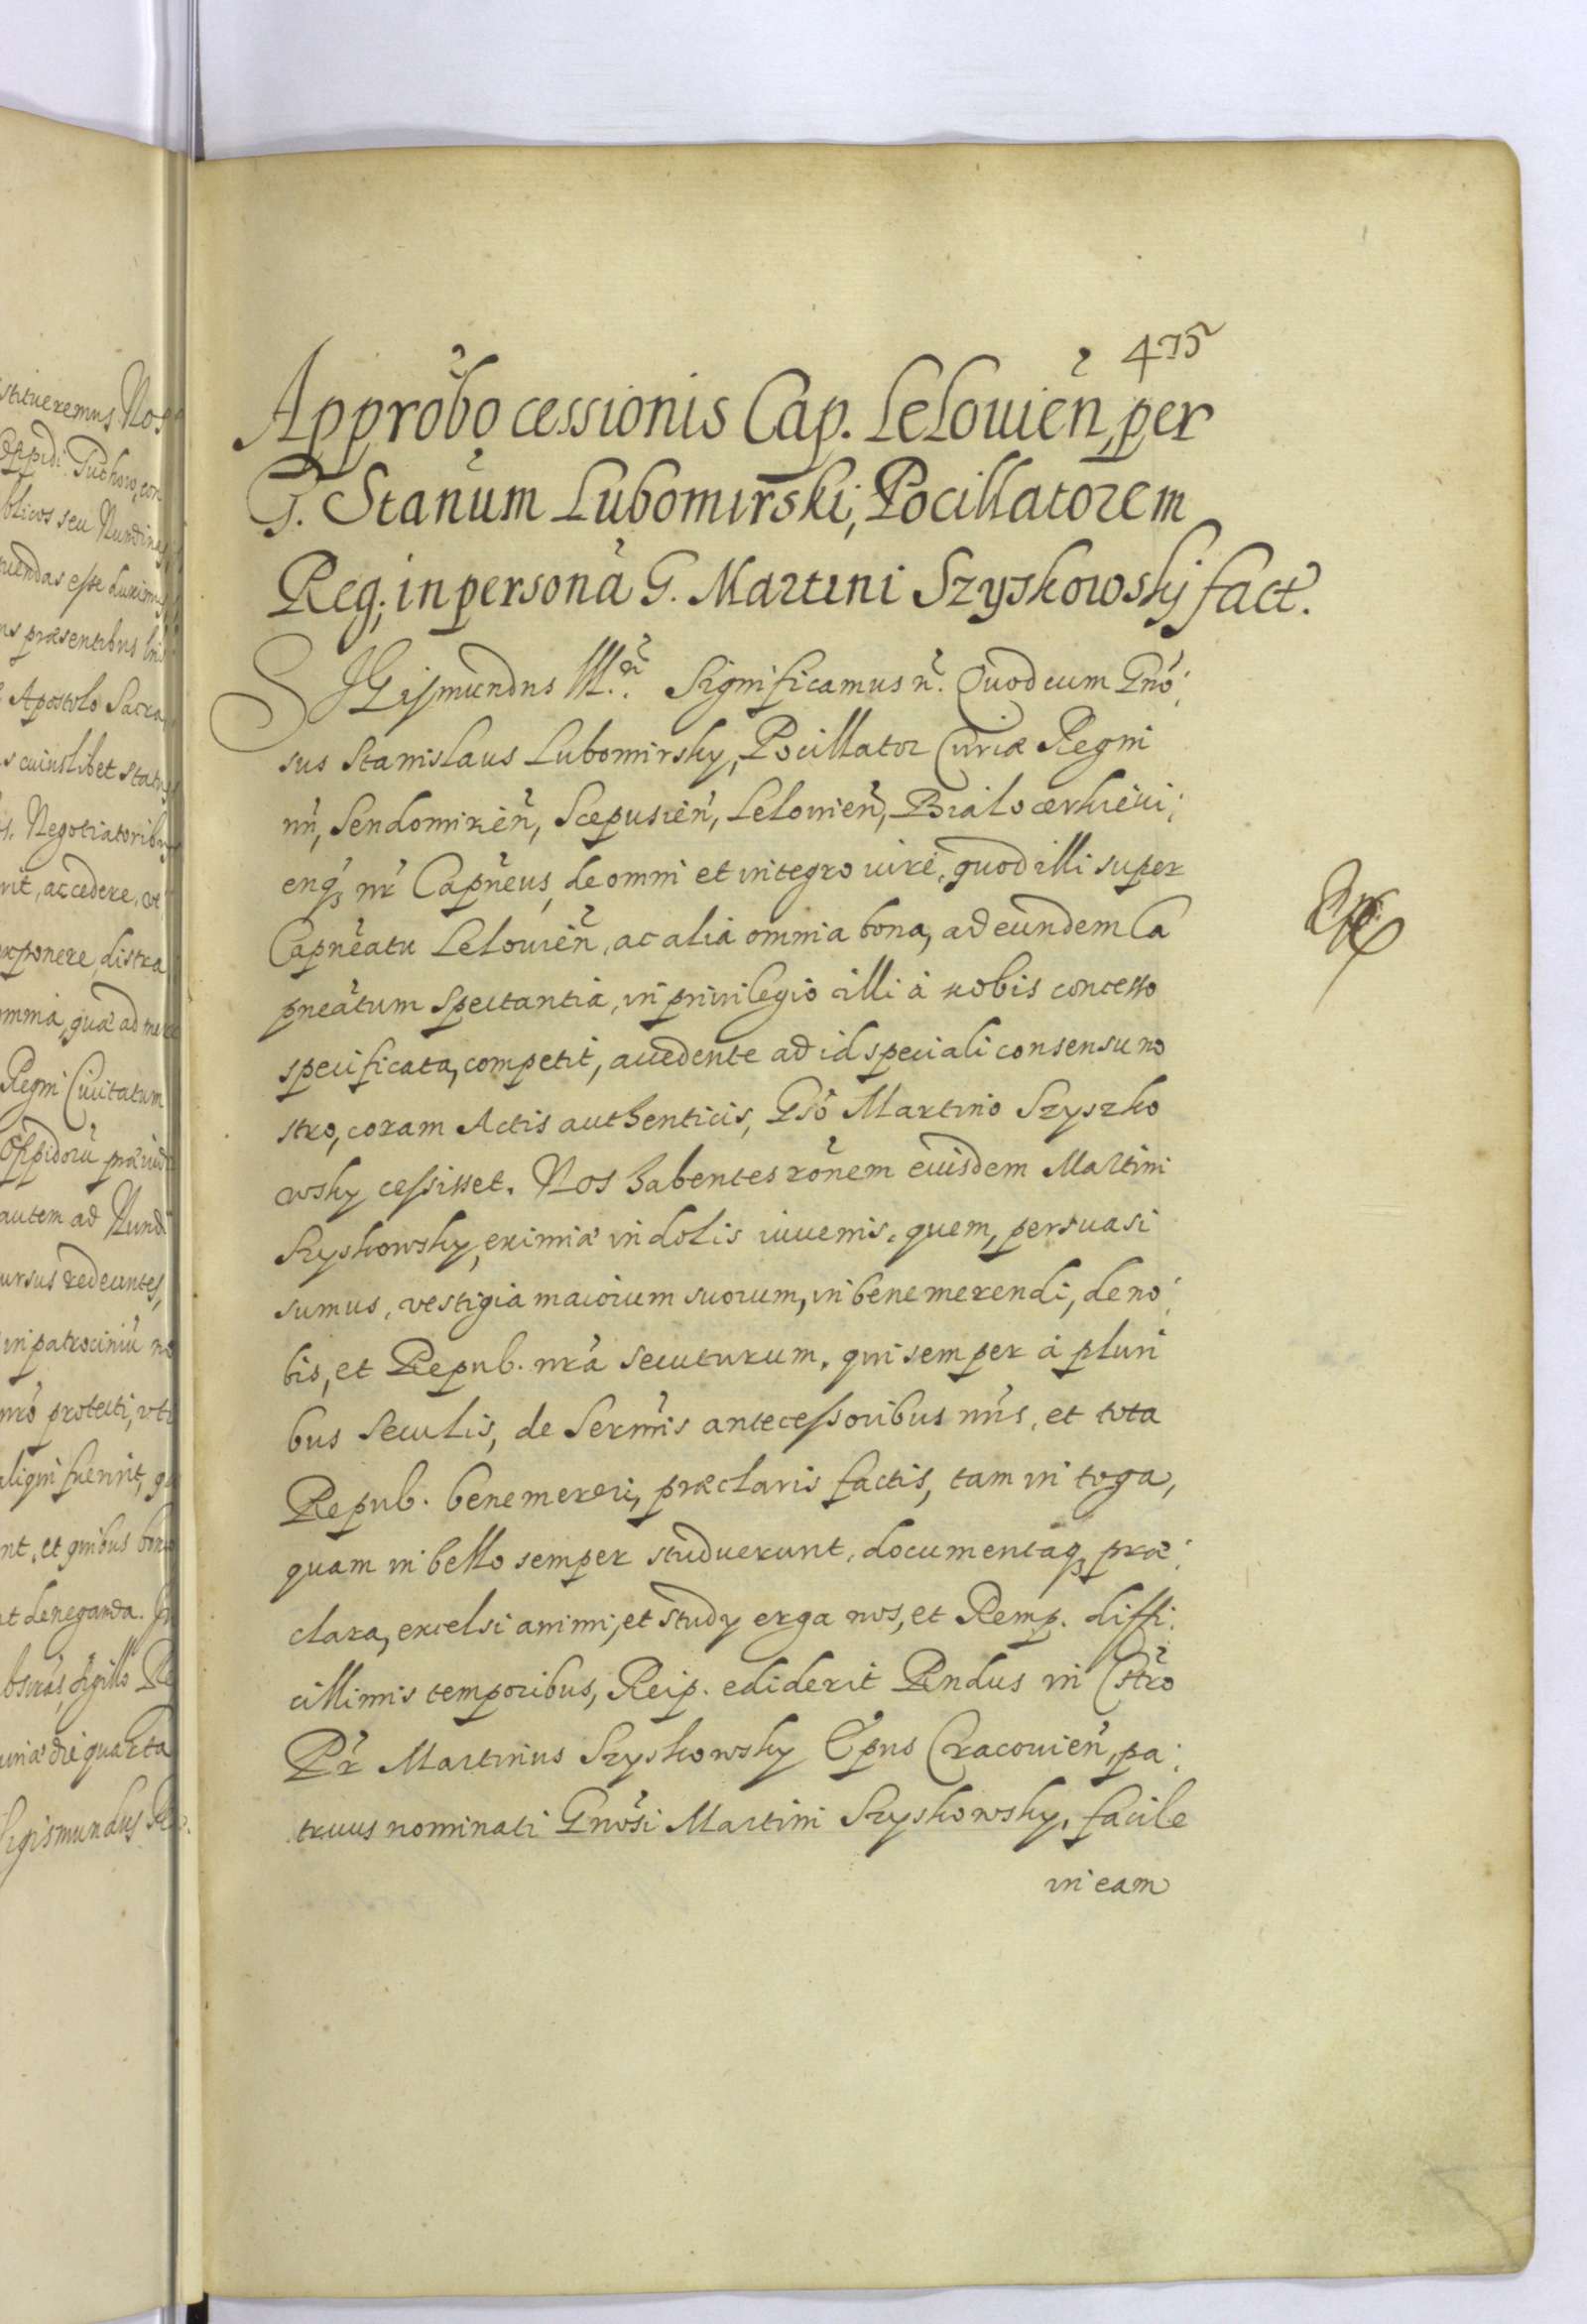 475
Approbo cessionis Cap. Lelouien, per
G. Stanum Lubomirski, Pocillatorem
Reg; in persona G. Martini Szyskowsky fact.
SIGismundus III. Significamus n. Quod cum Gno
sus Stanislaus Lubomirsky, Pocillator Curiæ Regni
nri, Sendomirien, Scepusien, Lelouien, Bialocerkieui
enq nr Capneus, de omni et integro iure, quod illi super
Capneatu Lelouien, ac alia omnia bona, ad eundem Ca
pneatum spectantia, in priuilegio illi à nobis concesso
specificata, competit, accedente ad id speciali consensu no
stro, coram Actis authenticis, Gso Martino Szyszko
wsky cessisset. Nos habentes ronem eiusdem Martini
Szyskowsky, eximiæ indolis iuuenis, quem, persuasi
sumus, vestigia maiorum suorum, in bene merendi, de no
bis, et Repub. nra secuturum, qui semper à pluri
bus seculis, de Sermis antecessoribus nris, et tota
Repub. benemereri, præclaris factis, tam in toga,
quam in bello semper studuerunt, documentaq præ
clara, excelsi animi, et study erga nos, et Remp. diffi
cillimis temporibus, Reip. ediderit Rndus in Cstro
Pr Martinus Szyskowsky Epus Cracouien, pa
truus nominati Gnosi Martini Szyskowsky, facile
in eam
stitueremus Nos
Oppidi Tuchow, con
blicos seu Nundinas
uendas esse duximus
præsentibus
Apostolo Sacra
s cuiuslibet status
Negotiatoribus
rit, accedere, et
exponere, distra
omnia, quæ ad
Regni Ciuitatum
Oppidoru præ
autem ad Nund
ursus redeuntes,
in patrociniu no
nro protecti, uti
aliqui fuerint,
nt, et quibus
t deneganda. In
sigillo Re
die quarta
Sigismundus Rex.